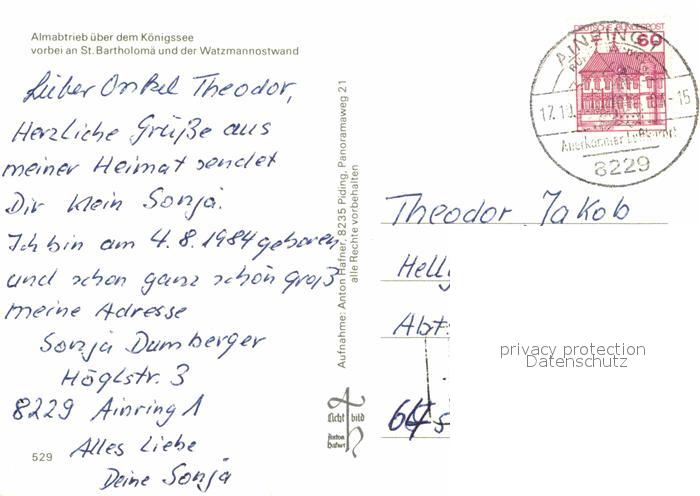 Almabtrieb über dem Königssee
vorbei an St. Bartholomä und der Watzmannostwand
Lieber Onkel Theodor,
Herzliche Grüße aus
meiner Heimat sendet
Dir klein Sonja.
Ich bin am 4.8.1984 geboren
und schon ganz schön groß
meine Adresse
Sonja Dumberger
Höglstr. 3
8229 Ainring 1
Alles Liebe
Deine Sonja
529
Aufnahme: Anton Hafner, 8235 Piding, Panoramaweg 21
alle Rechte vorbehalten
Licht bild
Anton
Hafner
DEUTSCHE BUNDESPOST
60
AINRING
17.10. - 15
Anerkannter Luftkurort
8229
Theodor Jakob
Helly
Abt.
64
privacy protection
Datenschutz